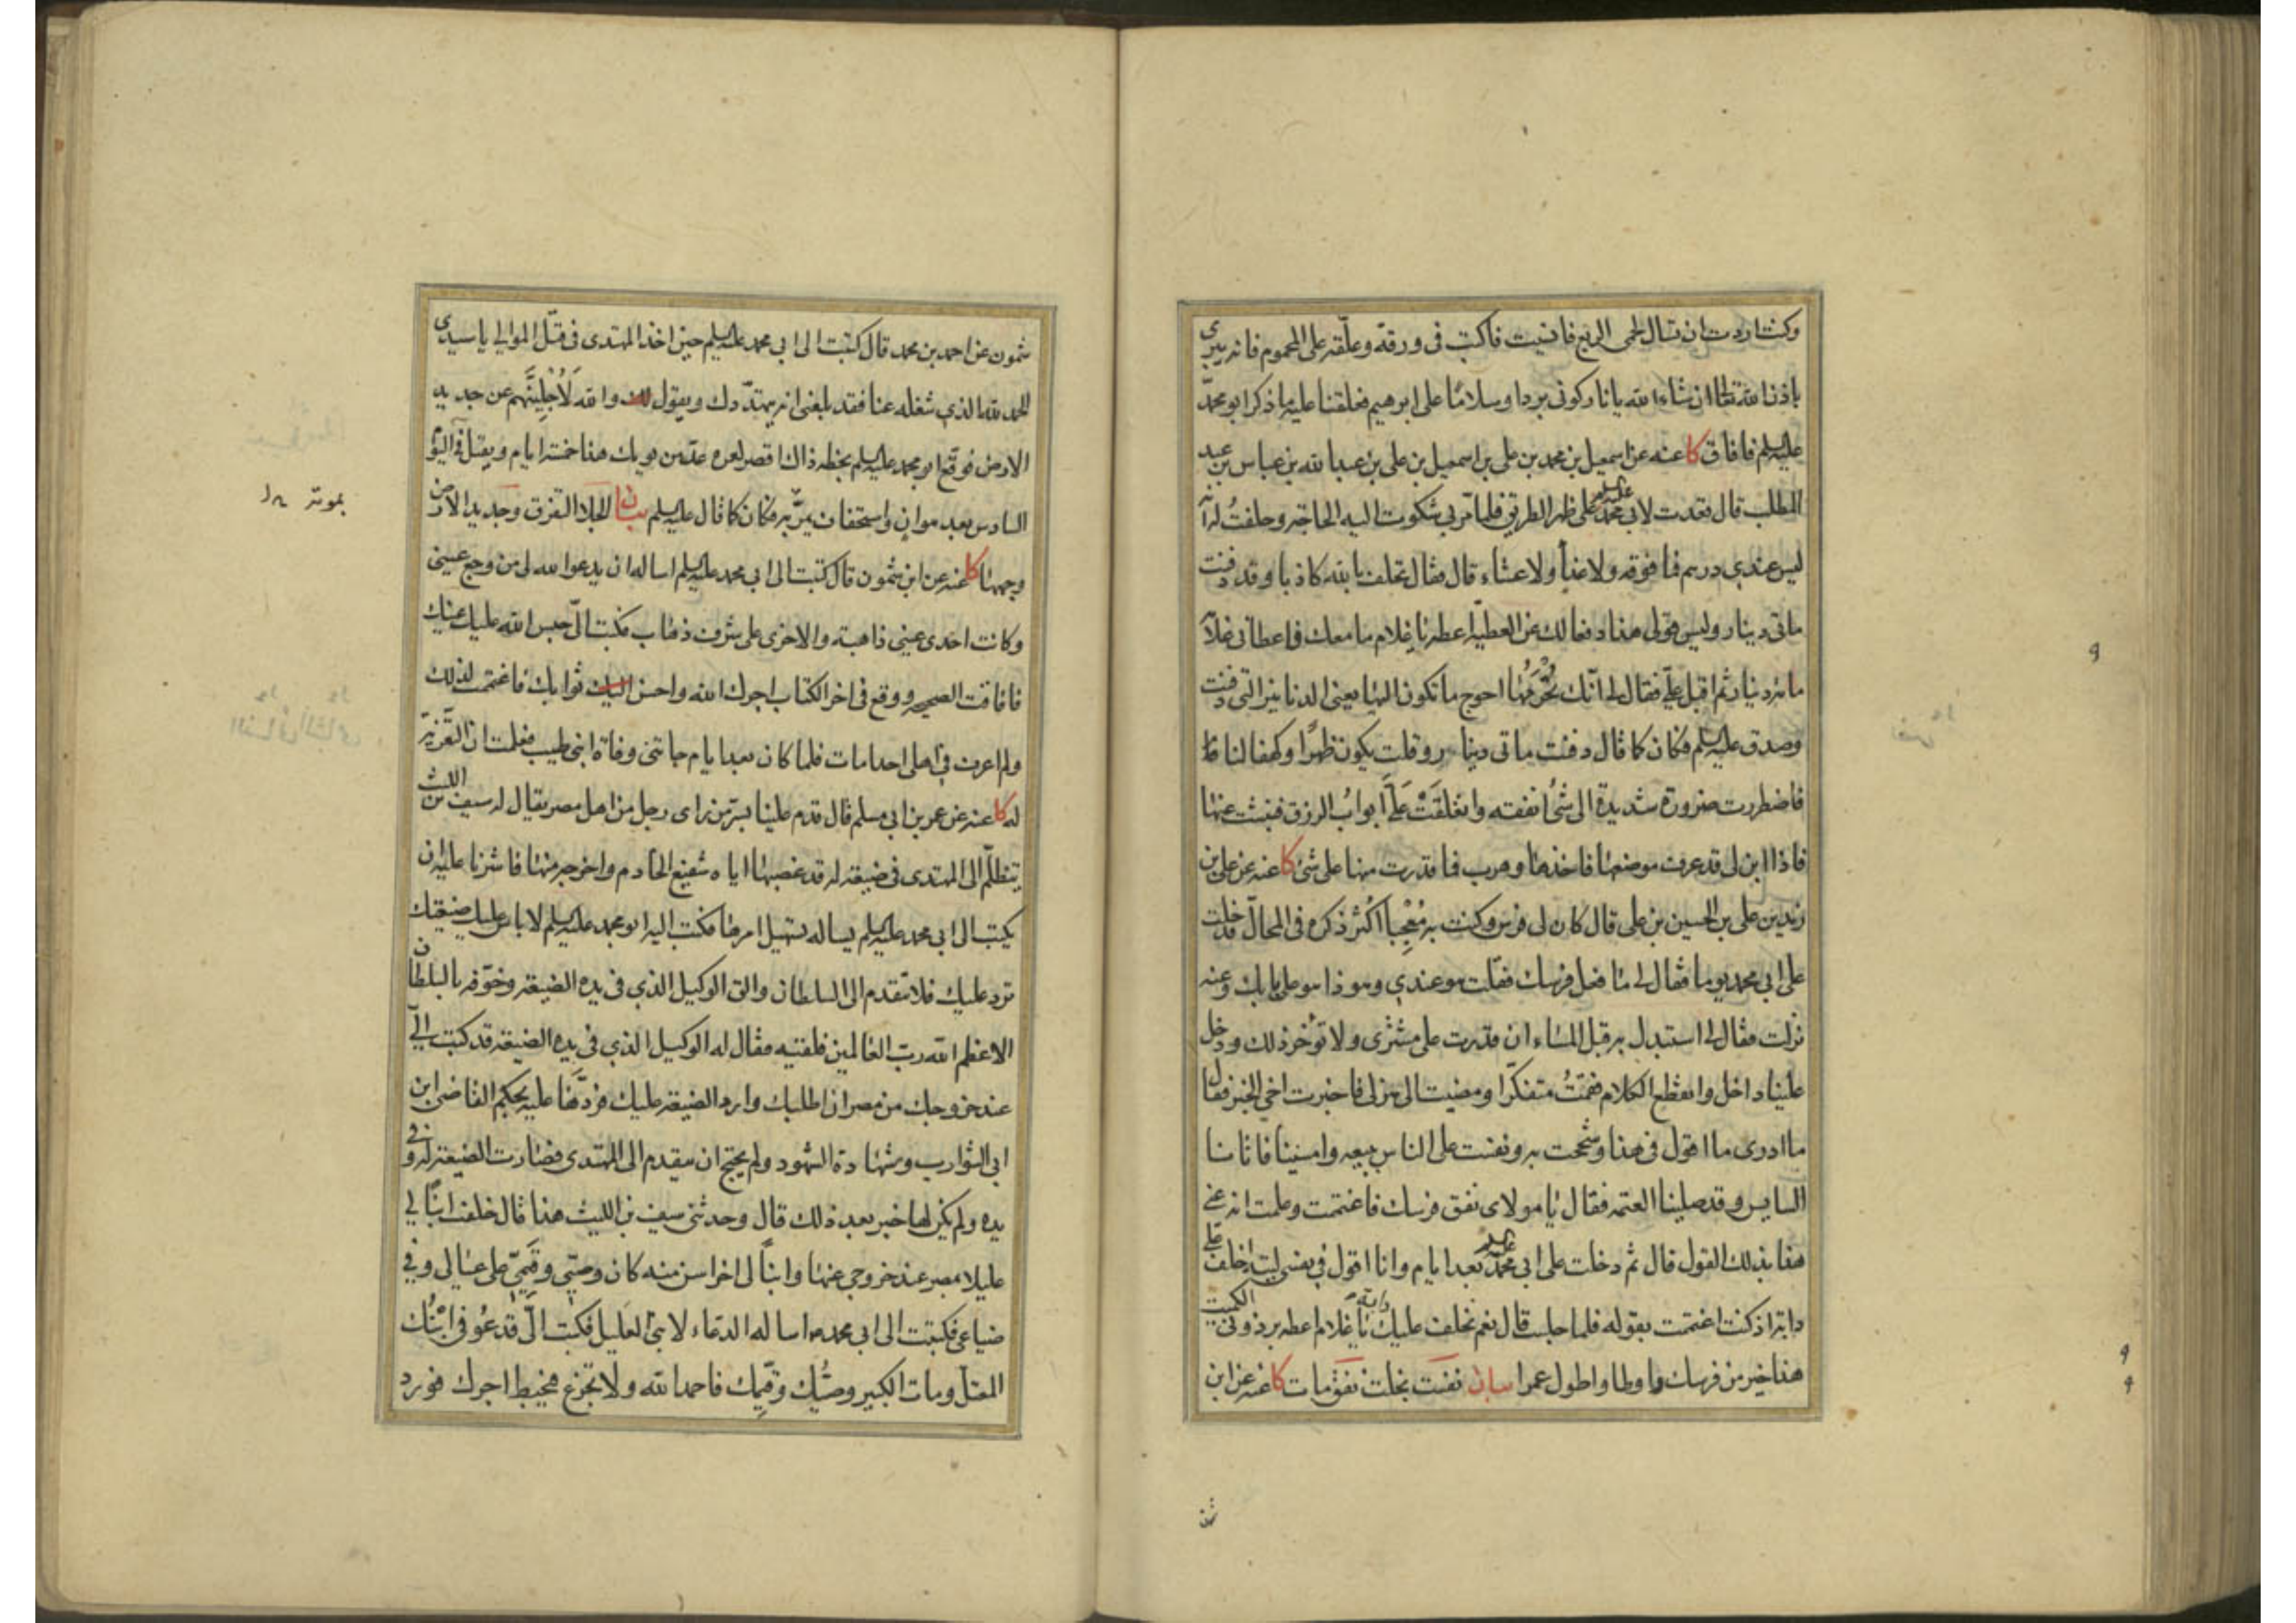 وكنت اردت ان تسال لحمى الربع فانسيت فاكتب فى ورقة وعلّقه على المحموم فانه يبرى
باذن الله تعالى ان شاء الله يا نار كونى بردا وسلاما على ابرهيم فعلقنا عليه ما ذكر ابو محمّد
عليه السلم فافاق كا عنه عن اسمعيل بن محمد بن على بن اسمعيل بن على بن عبد الله بن عباس بن عبد
المطلب قال قعدت لابى محمد عليه السلم على ظهر الطريق فلما مرّ بى شكوت اليه الحاجة وحلفت له انّه
ليس عندى درهم فما فوقه ولا غداً ولا عشاء قال فقال تحلف بالله كاذبا وقد دفنت
ماتى دينار وليس قولى هذا دفعا لك عن العطيّة اعطه يا غلام ما معك فاعطانى غلامه
مائة دينار ثم اقبل علىّ فقال لى انّك تُحْرَمُها احوج ما تكون اليها يعنى الدنانير التى دفنت
وصدق عليه السلم فكان كما قال دفنت ماتى دينار وقلت يكون ظهرًا وكهفا لنا
فاضطررت ضرورة شديدة الى شئ انفقه وانغلقَتْ عَلَىَّ ابوابُ الرزق فنبثت عنها
فاذا ابن لى قد عرف موضعها فاخذها وهرب فما قدرت منها على شئ كا عنه عن على بن
زيد بن على بن الحسين بن على قال كان لى فرس وكنت به مُعْجِباً اُكثر ذكره فى المحالّ فدخلت
على ابى محمد يوما فقال لى ما فعل فرسك فقلت هو عندى وهو ذا هو على بابك وعنه
نزلت فقال لى استبدل به قبل المساء ان قدرت على مشترى ولا تؤخر ذلك ودخل
علينا داخل وانقطع الكلام فقمتُ متفكّرا ومضيت الى منزلى فاخبرت اخى الخبر فقال
ما ادرى ما اقول فى هذا وشححت به ونفست على الناس ببيعه وامسينا فاتانا
السايس وقد صلينا العتمة فقال يا مولاى نفق فرسك فاغتممت وعلمت انه عنى
هذا بذلك القول قال ثم دخلت على ابى محمد عليه السلم بعد ايام وانا اقول فى نفسى ليته اخلف علىّ
دابة اذ كنت اغتممت بقوله فلما جلست قال نعم نخلف عليك دابة يا غلام اعطه برذونى الكميت
هذا خير من فرسك واوطا واطول عمرا بيان نفست بخلت نفق مات كا عنه عن ابن
شمون عن احمد بن محمد قال كتبت الى ابى محمد عليه السلم حين اخذ المهتدى فى قتل الموالى يا سيدى
الحمد لله الذى شغله عنا فقد بلغنى انه يتهدّدك ويقول والله لَاُجْلِيَنَّهم عن جديد
الارض فوقع ابو محمد عليه السلم بخطه ذاك اقصر لعمره عد من يومك هذا خمسة ايام ويقتل فى اليوم
السادس بعد هوان واستخفاف يمرّ به فكان كما قال عليه السلم بيان الجلا التفرق وجديد الارض
وجهها كا عنه عن ابن شمون قال كتبت الى ابى محمد عليه السلم اساله ان يدعو الله لى من وجع عينى
وكانت احدى عينى ذاهبة والاخرى على شرف ذهاب فكتب الىّ حبس الله عليك عينك
فافاقت الصحيحه ووقع فى اخر الكتاب اجرك الله واحسن ثوابك فاغتممت لذلك
ولم اعرف فى اهلى احدا مات فلما كان بعد ايام جاتنى وفاة ابنى طيب فعلمت ان التعزية
له كا عنه عن عمر بن ابى مسلم قال قدم علينا بسرّ من راى رجل من اهل مصر يقال له سيف بن الليث
يتظلّم الى المهتدى فى ضيعة له قد غصبها اياه شفيع الخادم واخرجه منها فاشرنا عليه ان
يكتب الى ابى محمد عليه السلم يساله تسهيل امرها فكتب اليه ابو محمد عليه السلم لا باس عليك ضيعتك
ترد عليك فلا تتقدم الى السلطان والق الوكيل الذى فى يده الضيعة وخوّفه بالسلطان
الاعظم الله ربّ العالمين فلقيه فقال له الوكيل الذى فى يده الضيعة قد كتب الىّ
عند خروجك من مصر ان اطلبك وارد الضيعة عليك فردّها عليه بحكم القاضى ابن
ابى الشوارب وشهادة الشهود ولم يحتج ان يتقدم الى المهتدى فصارت الضيعة له وفى
يده ولم يكن لها خبر بعد ذلك قال وحدثنى سيف بن الليث هذا قال خلفت ابنًا لى
عليلا بمصر عند خروجى عنها وابناً لى اخر اسن منه كان وصيّى وقيّمى على عيالى وفى
ضياعى فكتبت الى ابى محمد اساله الدعاء لابنى العليل فكتب الىّ قد عُوفى ابْنُك
المعتل ومات الكبير وصيُّك وقيّمك فاحمد الله ولا تجزع فيحبط اجرك فورد